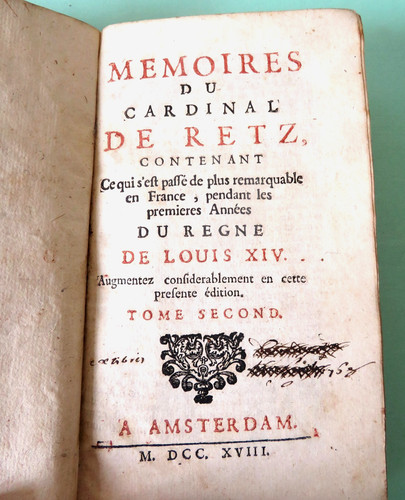 MEMOIRES
DU
CARDINAL
DE RETZ,
CONTENANT
Ce qui s'est passé de plus remarquable
en France, pendant les
premieres Années
DU REGNE
DE LOUIS XIV.
Augmentez considerablement en cette
presente édition.
TOME SECOND.
ex libris
A AMSTERDAM.
M. DCC. XVIII.